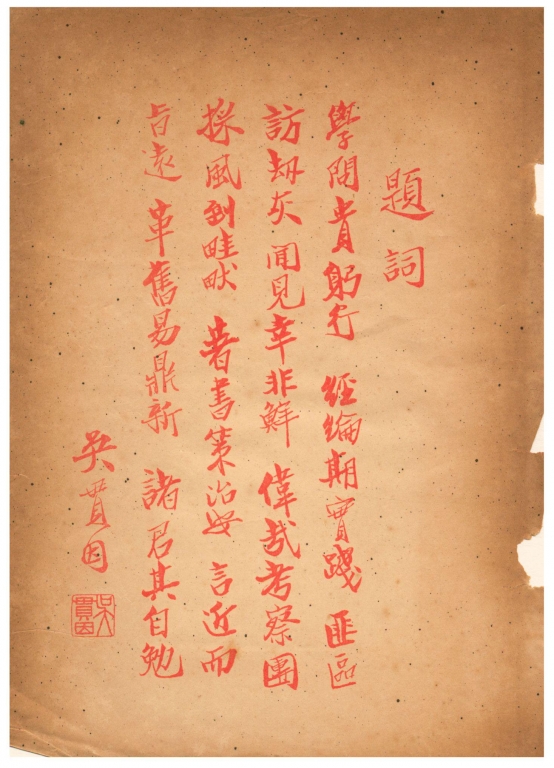 題詞
學問貴躬行　經綸期實踐　匪區
訪劫灰　聞見幸非鮮　偉哉考察團
採風到畦畎　著書策治安　言近而
旨遠　革舊易鼎新　諸君其自勉
吳貫因
吳貫因